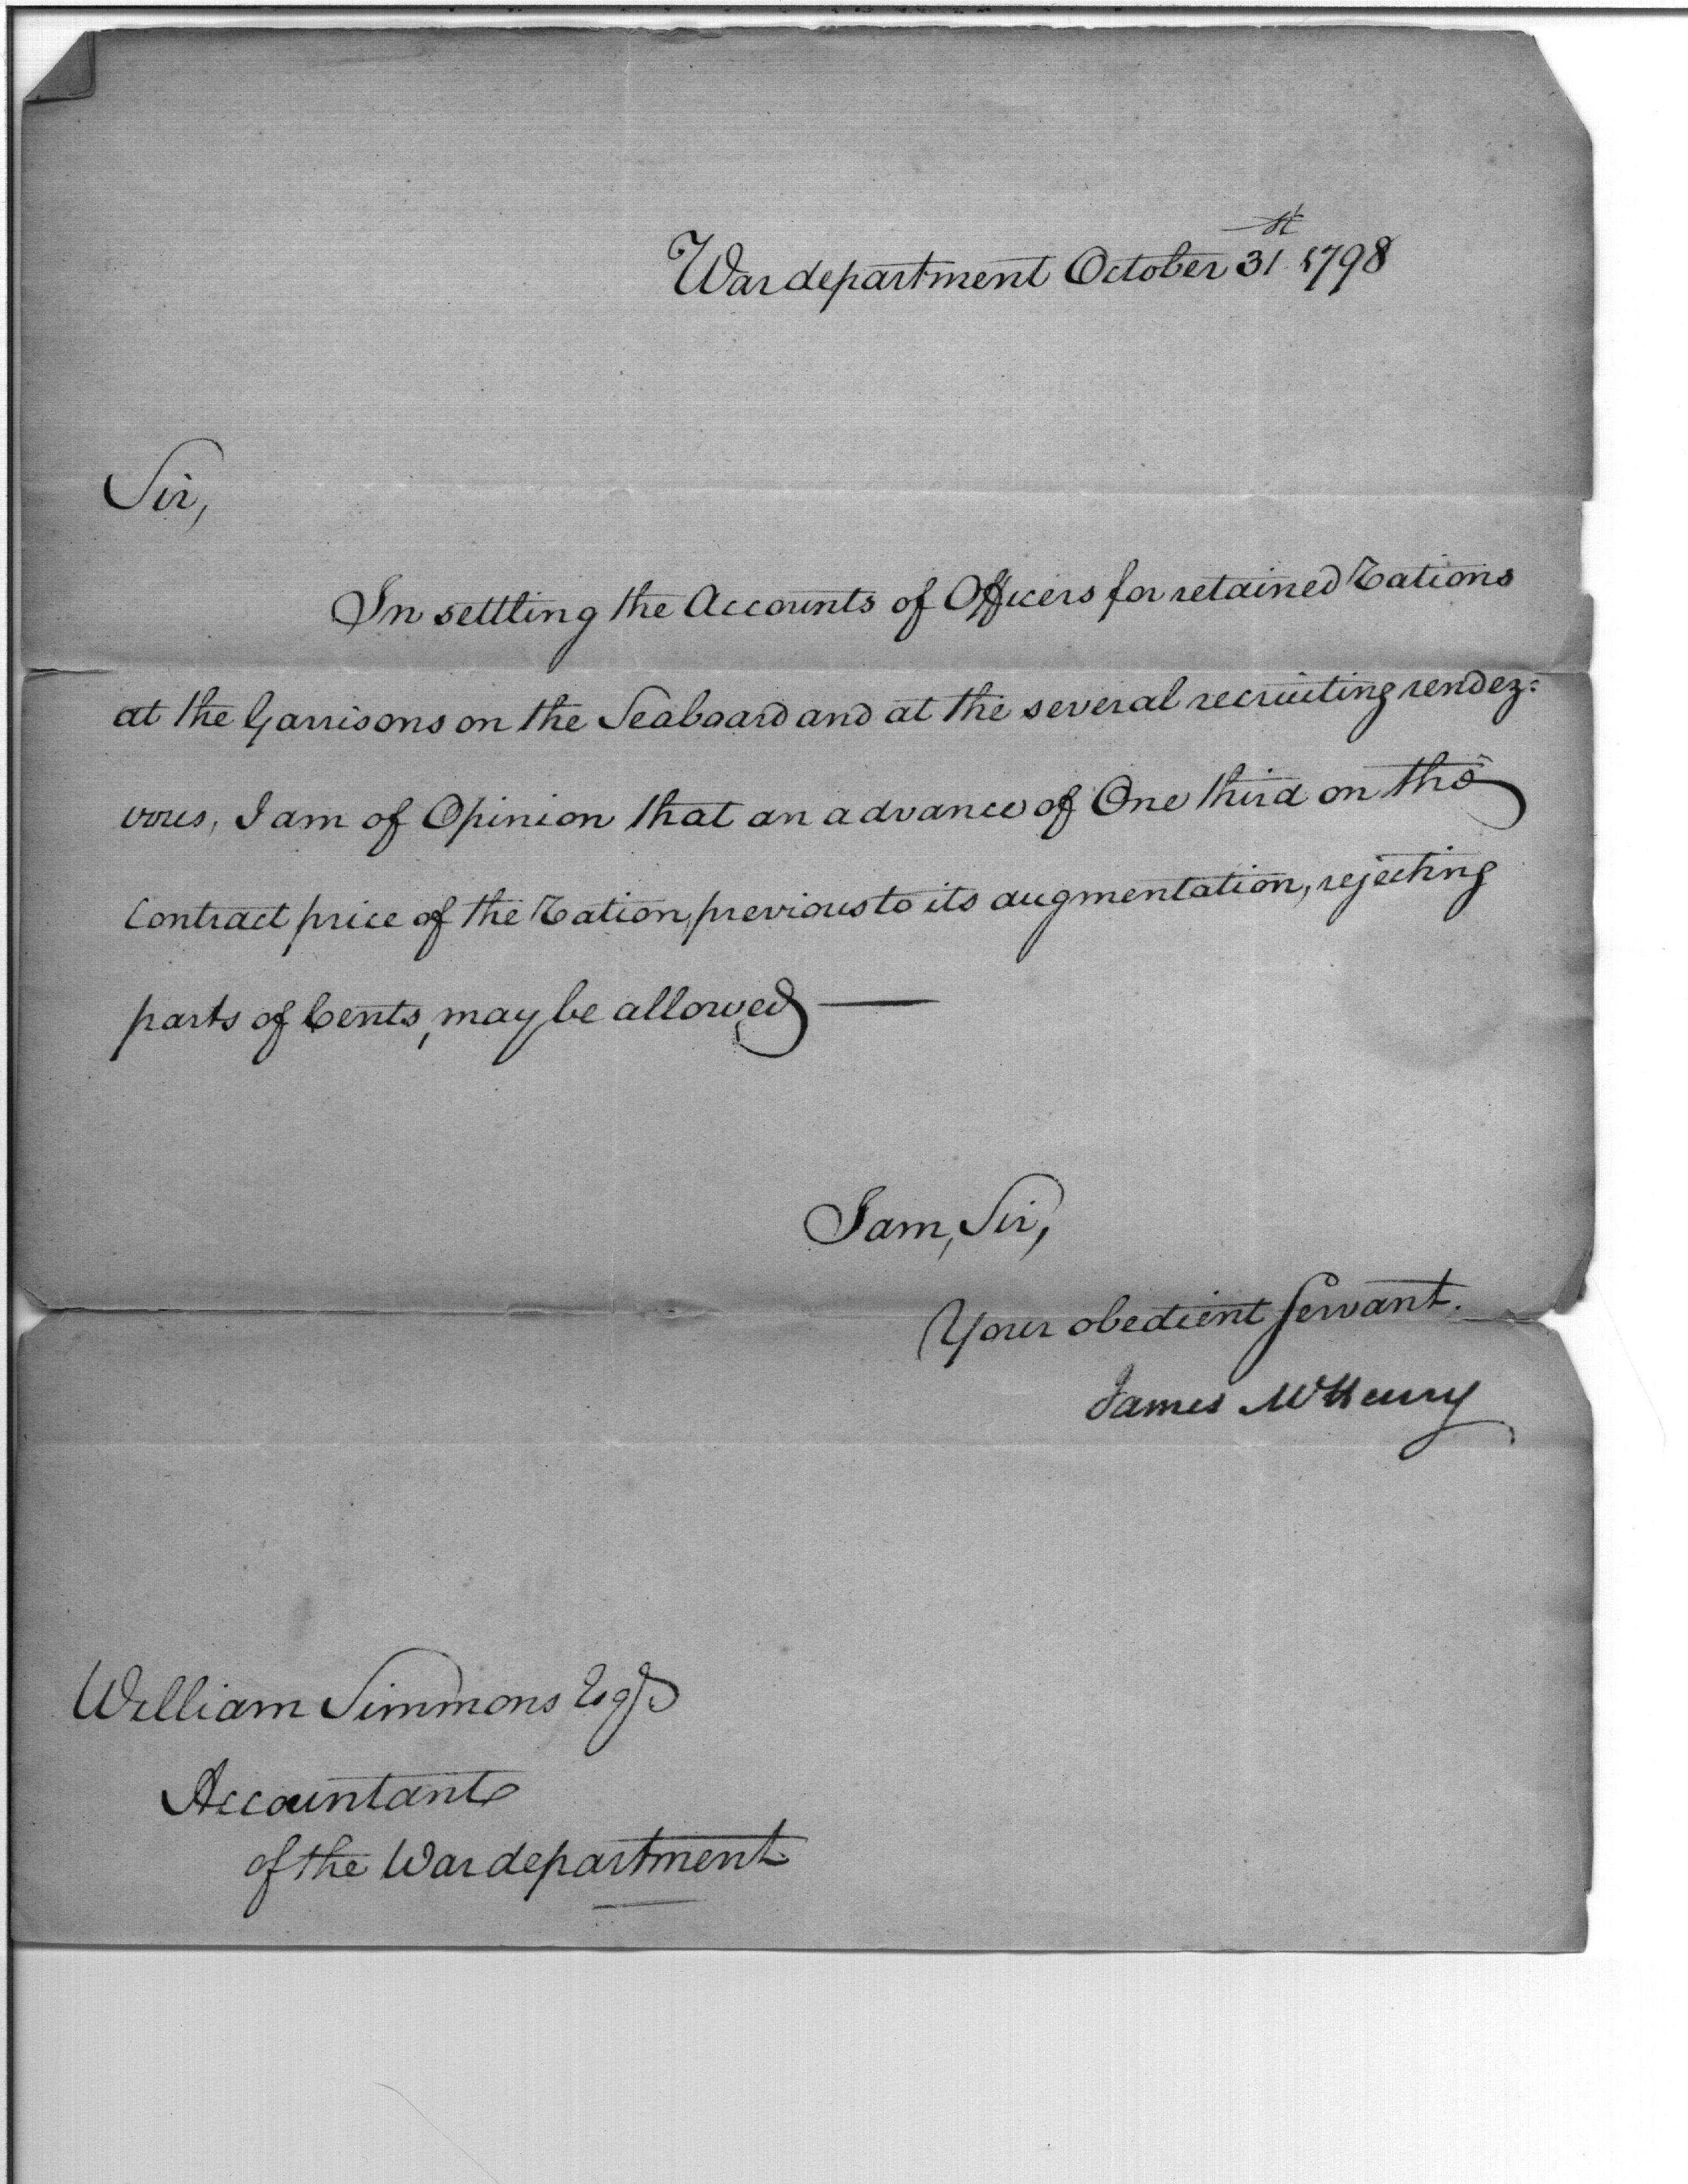 War department October 31st 1798
Sir,
In settling the Accounts of Officers for retained rations
at the Garrisons on the Seaboard and at the several recruiting rendez=
vous, I am of Opinion that an advance of One third on the
Contract price of the ration, previous to its augmentation, rejecting
parts of Cents, may be allowed —
I am, Sir,
Your obedient Servant.
James McHenry
William Simmons Esqr
Accountant
of the War department